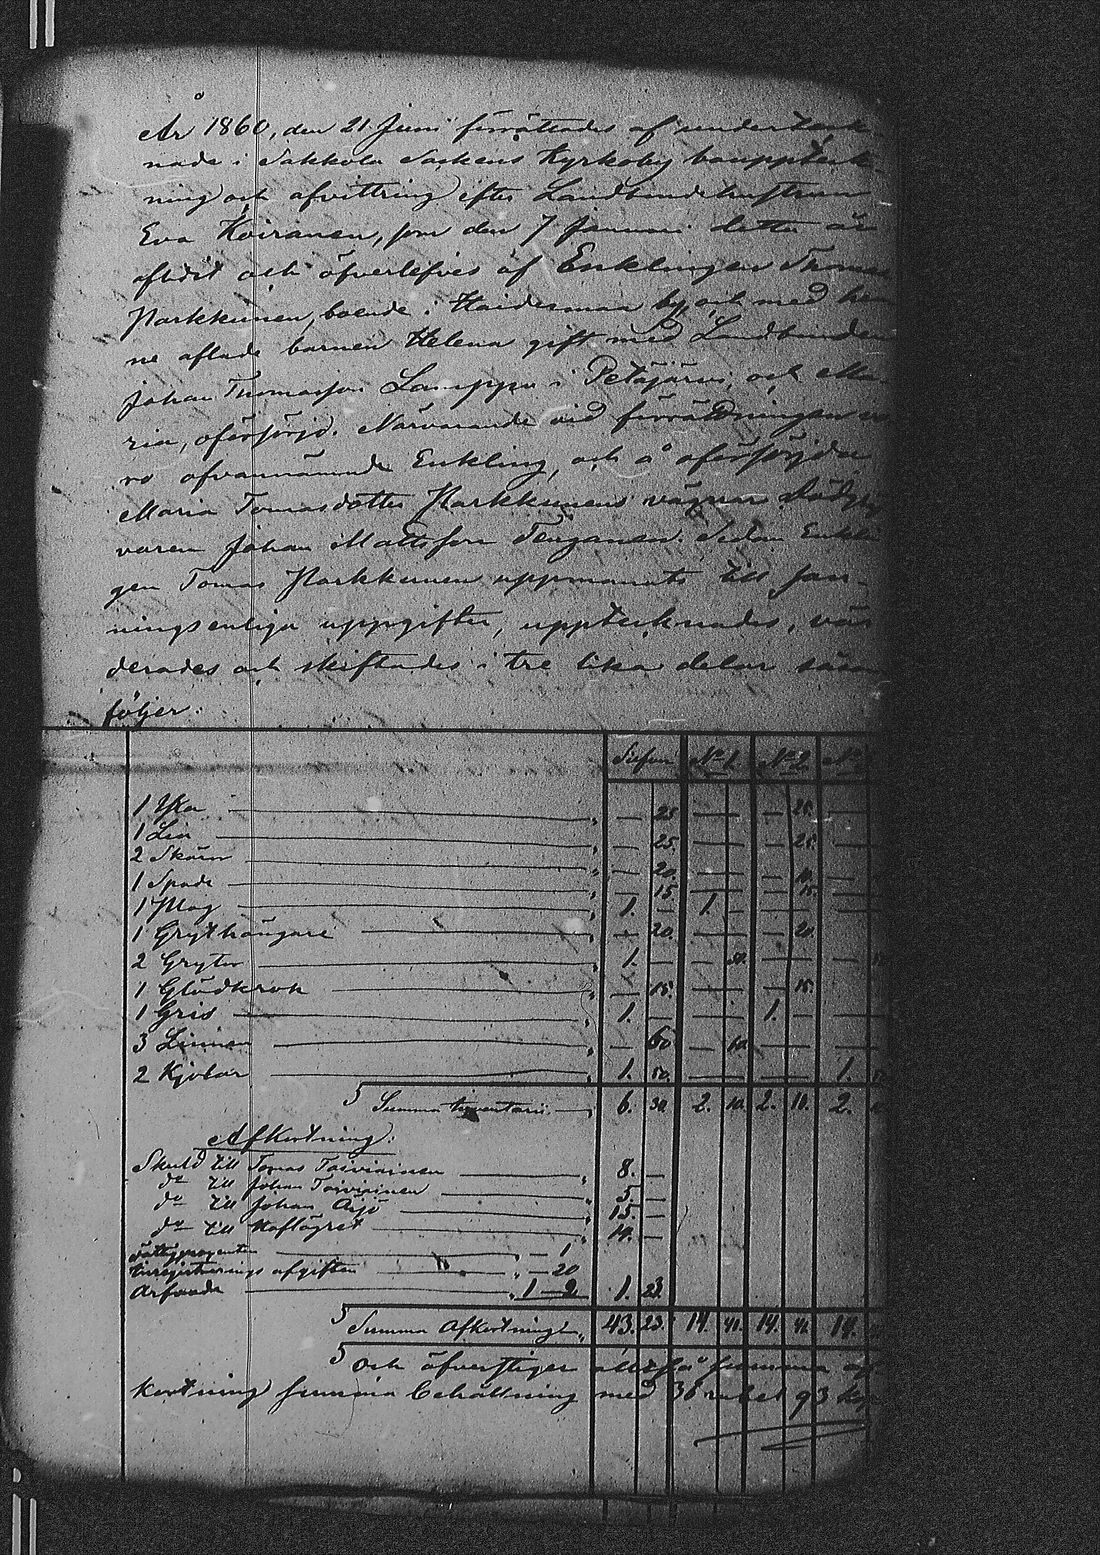 År 1860, den 21 Juni förrättades af underteck
nade i Sakkola Sockens Kyrkoby bouppteck
ning och afvittring efter Landbondehustrun
Eva Koiranen, som den 7 Januari detta år
aflidit och öfverlefves af Enklingen Thomas
Parkkunen, boende i Haidesmaa by, och med hen
ne aflade barnen Helena gift med Landbonden
Johan Thomasson Lamppu i Petäjärvi, och Ma-
ria, oförsörjd. Närvarande vid förrättningen vo
ro ofvannämnde Enkling, och å oförsörjda
Maria Tomasdotter Parkkunens vägnar
varen Johan Mattsson. Sedan Enklin
gen Tomas Parkkunen uppmanats till san-
ningsenliga uppgifter, upptecknades, vär
derades och skiftades i tre lika delar såsom
följer:
Silfver No 1. No 2. No
1 Yxa — 25 — — — 25. —
1 Lia — 25. — — — 25. —
2 Skäror — 20. — — — 10. —
1 Spade — 15 — — — 15. —
1 Plog 1. — 1. — — —
1 Grythängare — 20. — — — 20.
2 Grytor 1. — — 50. — — —
1 Glödkrok — 15. — — — 15.
1 Gris 1. — — — 1. — —
3 Linnen — 60. — 60. — — —
2 Kjolar 1. 50. — — — — 1. 50
Summa Inventarii 6. 30. 2. 10. 2. 10. 2. 10
Afkortning:
Skuld till Tomas Toiviainen 8. —
do till Johan Toiviainen 5. —
do till Johan Asjö 15. —
do till Hoflägret 14. —
fattigprocenten — 1
Inregistrerings afgiften — 20
Arfvode 1 — 2 1. 23.
Summa Afkortning 43. 23. 14. 41. 14. 41. 14.
och öfverstiger alltså summa af
kortning summa Behållning med 36 rubel 93 kop